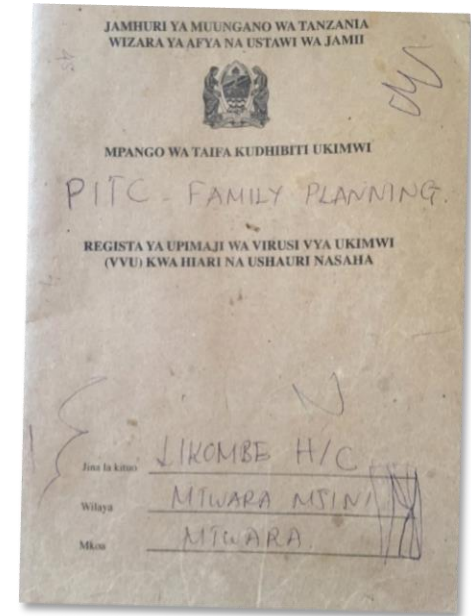 JAMHURI YA MUUNGANO WA TANZANIA
WIZARA YA AFYA NA USTAWI WA JAMII
MPANGO WA TAIFA KUDHIBITI UKIMWI
PITC - FAMILY PLANNING.
REGISTA YA UPIMAJI WA VIRUSI VYA UKIMWI
(VVU) KWA HIARI NA USHAURI NASAHA
Jina la kituo LIKOMBE H/C
Wilaya MTWARA MJINI
Mkoa MTWARA.